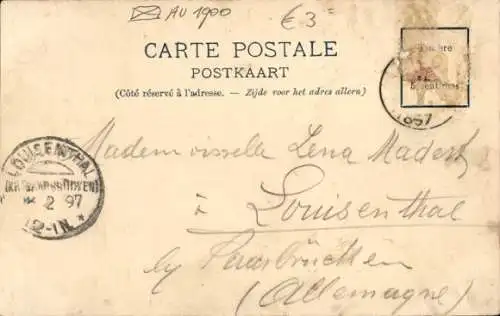 AU 1900
€ 3 =
CARTE POSTALE
POSTKAART
(Côté réservé à l'adresse. – Zijde voor het adres alleen.)
Timbre
1897
LOUISENTHAL
2 97
12-1N
Mademoiselle Lena Madert
à Louisenthal
by Saarbrücken
(Allemagne)